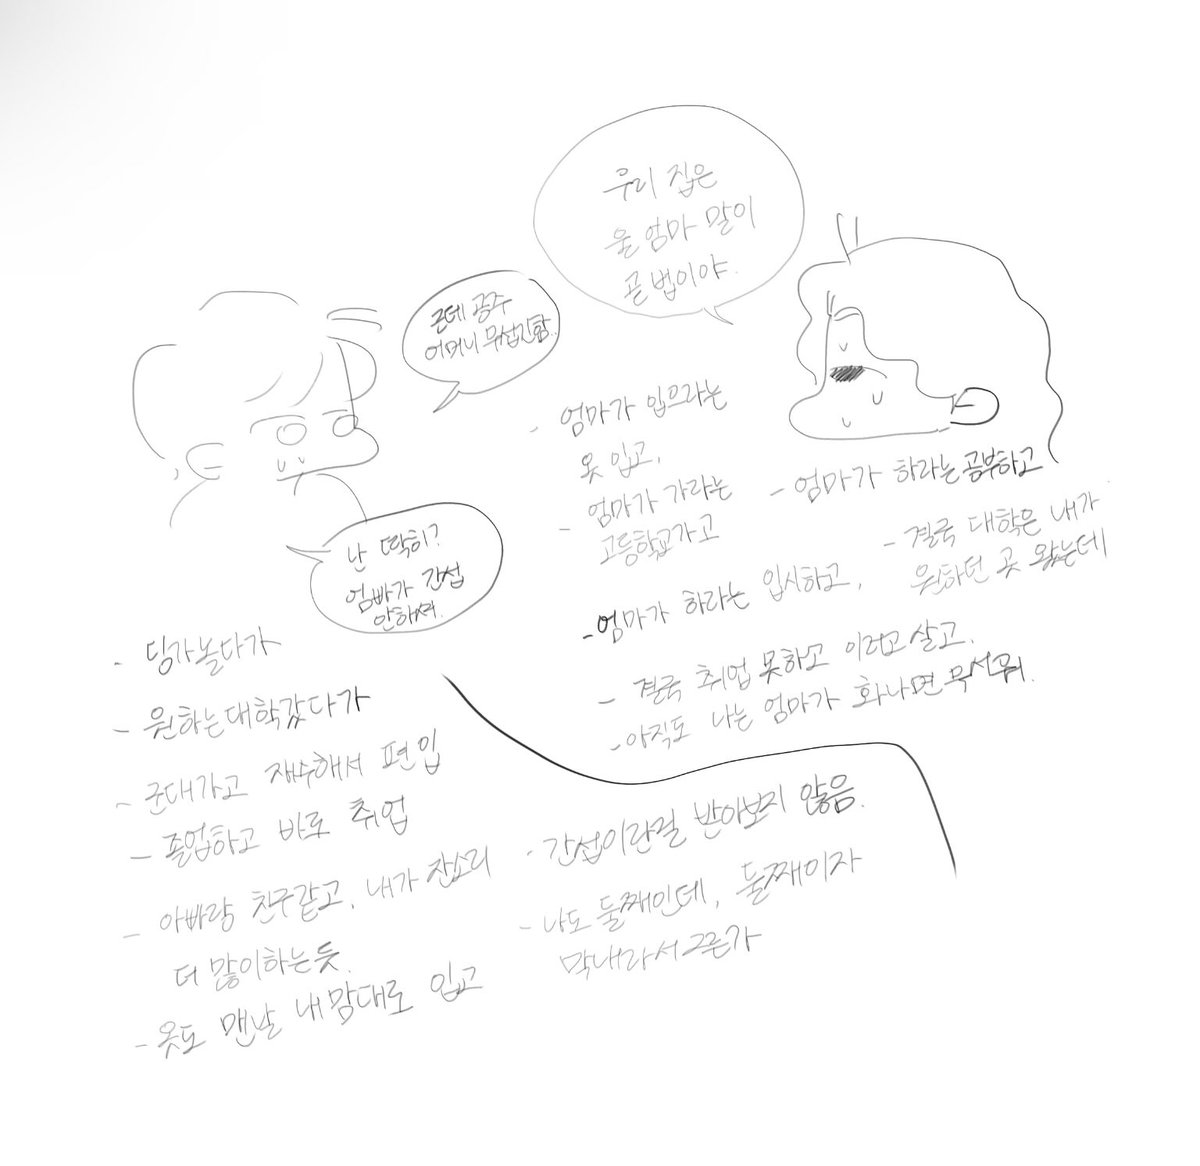 우리 집은
울 엄마 말이
곧 법이야.
근데 공주
어머니 무섭긴함.
- 엄마가 입으라는
옷 입고,
- 엄마가 가라는
고등학교가고
- 엄마가 하라는 공부하고
- 엄마가 하라는 입시하고,
- 결국 대학은 내가
원하던 곳 왔는데
- 결국 취업 못하고 이러고 살고.
- 아직도 나는 엄마가 화나면 무서워.
난 딱히?
엄빠가 간섭
안하셔.
- 딩가놀다가
- 원하는대학갔다가
- 군대가고 재수해서 편입
- 졸업하고 바로 취업
- 아빠랑 친구같고, 내가 잔소리
더 많이하는듯.
- 옷도 맨날 내맘대로 입고
- 간섭이란걸 받아보지 않음.
- 나도 둘째인데, 둘째이자
막내라서그른가